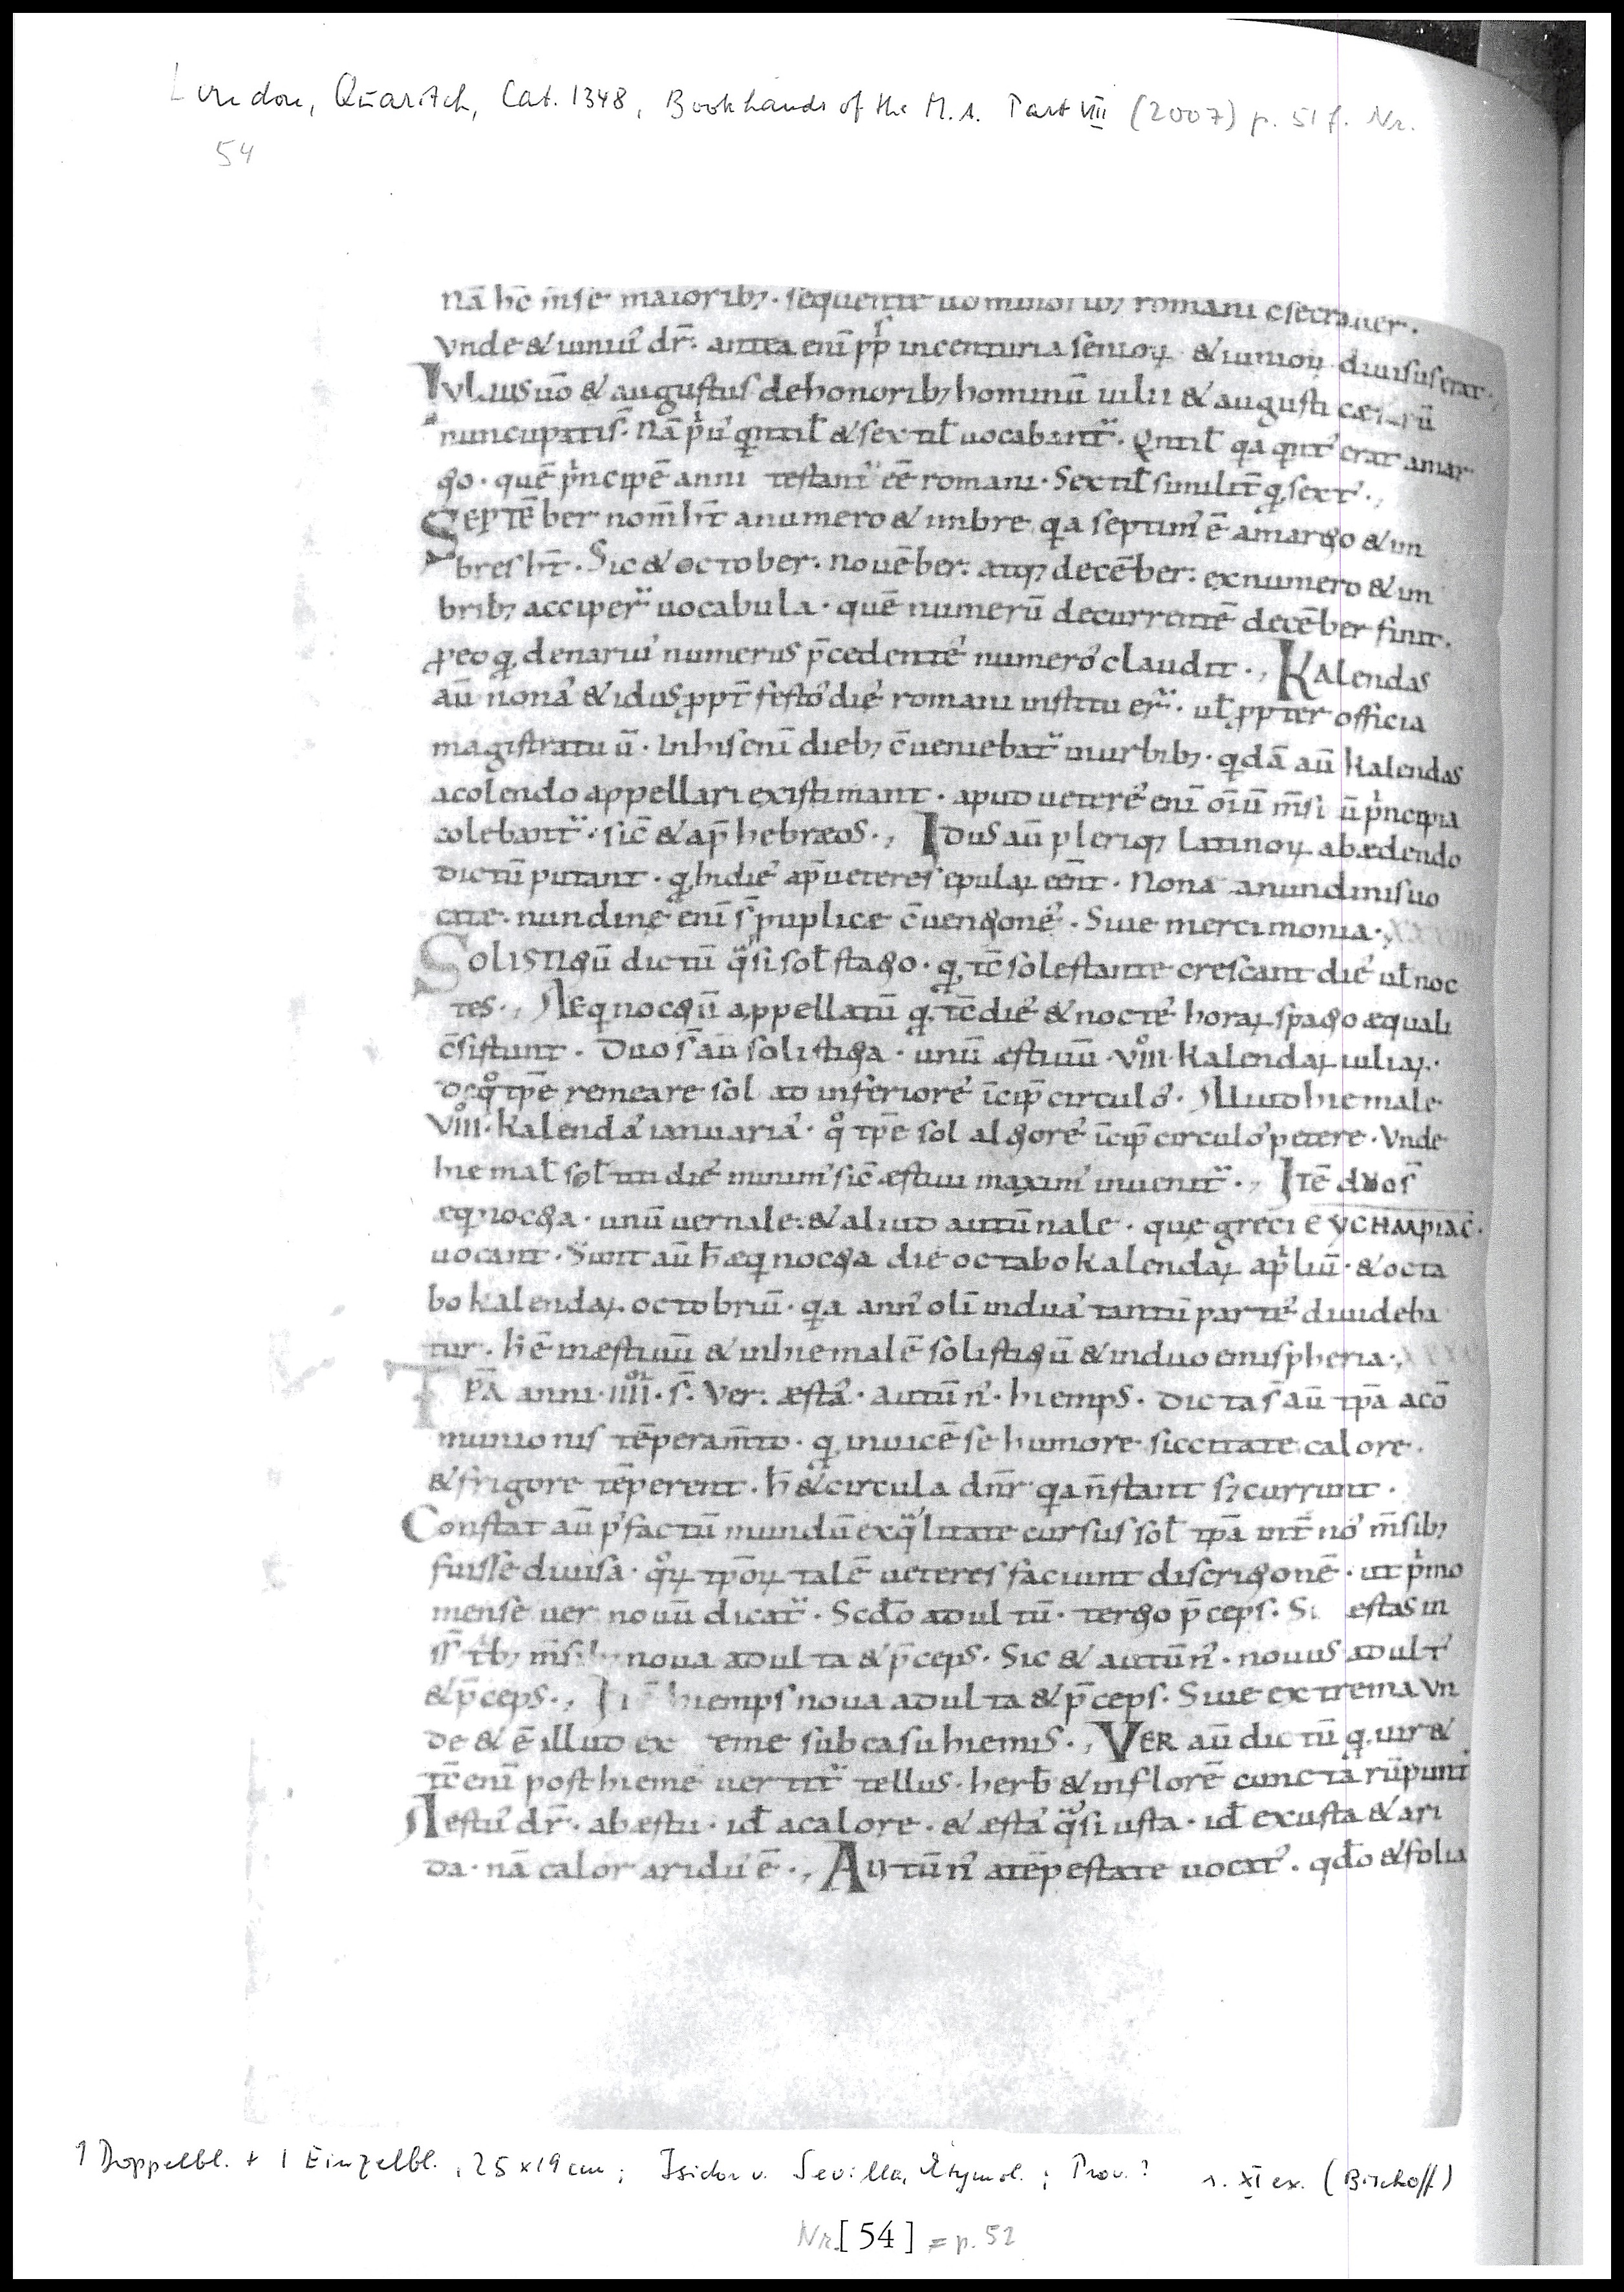 London, Quaritch, Cat. 1348, Bookhands of the M.A. Part VIII (2007) p. 51f. Nr.
54
nā hc̄ m̄se maiorib; sequente romani
Vnde & iuniu' dr̄. antea eni pp̄ls incenturia senioꝝ & iunioꝝ diuisus erat.
Iulius uō & augustus dehonorib; hominū iulii & augusti
nuncupatis̄. Nā p'u' quintil̄ & sextil̄ uocabant̄. Quintil̄ qa quint' erat amar
go. quē p'ncipē anni testant̄ eē romani. Sextil̄ similit̄ q, sext'.,
Septēber nom̄ ht̄ anumero & imbre, qa septim' ē amargo & im
bres ht̄. Sic & october. nouēber: atq; decēber: exnumero & im
brib; acciper̄ uocabula. quē numerū decurrentē decēber finit.
ꝓeo q, denariu' numerus p̄cedente' numero' claudit., Kalendas
aū nona' & idus ꝓpt̄ festo' die' romani institu er̄. ul̄ ꝓpter officia
magistratu ū. Inhis eni dieb; c̄ueniebat̄ inurbib;. qdā aū kalendas
acolendo appellari existimant. apud uetere' eni oīū m̄si ū p'ncipia
colebant̄. sic̄ & ap̄ hebræos., Idus aū pleriq; latinoꝝ abædendo
dictū putant. q, hi die' ap̄ ueteres epulaꝝ eēnt. Nona' anundinis uo
cate. nundine eni s̄ puplice c̄uengone'. Siue mercimonia.,
Solistigū dictū q̈si sol̄ stago. q, tc̄ sole stante crescant die' ul̄ noc
tes., Aeqnocgū appellatū q, tc̄ die' & nocte' horaꝝ spago æquali
c̄sistunt. Duo s̄ aū solistiga. unū æstiuū VIII. kalendaꝝ iuliaꝝ.
De q̊ tp̄e remeare sol ad inferiore' īcip̄ circulo'. Aliud hiemale
VIII. kalenda' ianuaria'. q̊ tp̄e sol algore' īcip̄ circulo' petere. Vnde
hiemal̄ sol̄ titi die' minim' sic̄ æstiui maxim' inuenit̄., Itē duo s̄
æqnocga. unū uernale: & aliud autūnale. que greci
uocant. Sunt aū h̄ æqnocga die octabo kalendaꝝ ap'liū. & octa
bo kalendaꝝ octobriū. qa ann' oli indua' tantū parte' diuideba
tur. h̄ ē inæstiuū & inhiemalē solistigū & induo emispheria.,
Tp̄a anni IIII. s̄. Ver: æsta'. autūn'. hiemps. Dicta s̄ aū tp̄a acō
munionis tēperam̄to. q, inuicē se humore siccitate calore
& frigore tēperent. h̄ & circula dnr̄ qa n̄ stant s; currunt.
Constat aū p' factū mundū exq̈litate cursus sol̄ tp̄a int̄no' m̄sib;
fuisse diuisa. q̊ꝝ tp̄oꝝ talē ueteres faciunt discrigonē. ut p'mo
mense uer nouū dicat̄. Scdo adultū. tergo p̄ceps. Sic estas in
m̄sib; noua adulta & p̄ceps. Sic & autūn'. nouus adult'
& p̄ceps., hiemps noua adulta & p̄ceps. Siue extrema Vn
de & ē illud ex eme sub casu hiemis., Ver aū dictū q, uir&
tc̄ eni post hieme' uertit̄ tellus. herb̄ & inflorē cuncta rūpunt
Aestu' dr̄. abæstu. id acalore. & æsta' q̈si usta. id exusta & ari
da. nā calor aridu' ē., Autūn' atēpestate uocat'. qdo & folia
1 Doppelbl. + 1 Einzelbl., 25 x 19 cm; Isidor v. Sevilla, Etymol.; Prov.? s. XI ex. (Bischoff)
Nr. [54] = p. 52